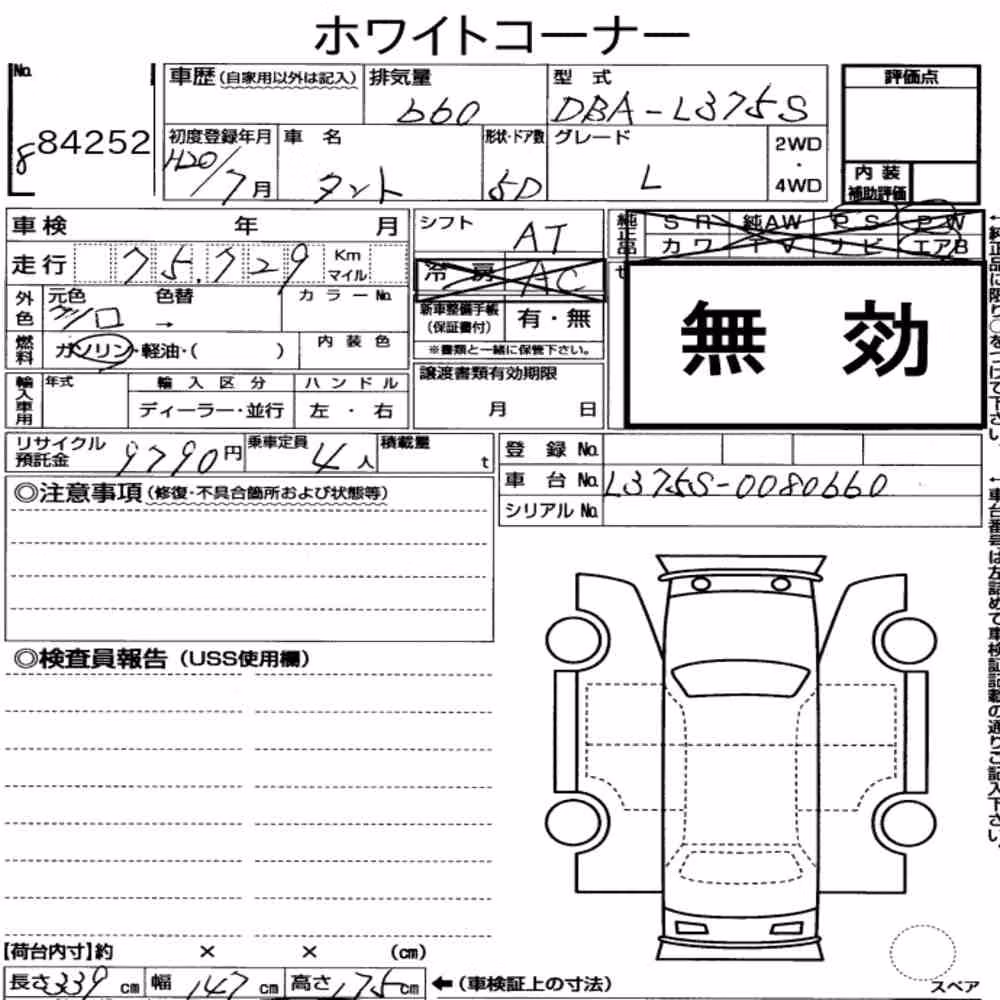 ホワイトコーナー
No. 84252
8
車歴(自家用以外は記入) 排気量 型式 評価点
660 DBA-L375S
初度登録年月 車名 形状・ドア数 グレード 2WD
・
H20/7月 タント 5D L 4WD
内装
補助評価
車検 年 月 シフト AT
純正品 SR 純AW PS PW
カワ TV ナビ エアB
走行 75,729 Km
マイル
冷房 AC
無効
外色 元色 色替 カラーNo.
シロ →
新車整備手帳
(保証書付) 有・無
※書類と一緒に保管下さい。
燃料 ガソリン・軽油・( ) 内装色
譲渡書類有効期限
月 日
輸入車用 年式 輸入区分 ハンドル
ディーラー・並行 左・右
リサイクル
預託金 9790円 乗車定員 4人 積載量 t
登録No.
車台No. L375S-0080660
シリアルNo.
◎注意事項(修復・不具合箇所および状態等)
◎検査員報告(USS使用欄)
【荷台内寸】約 × × (cm)
長さ339cm 幅147cm 高さ175cm ←(車検証上の寸法)
スペア
←純正品に限り○をつけて下さい。
←車台番号は左詰めで車検証記載の通りご記入下さい。